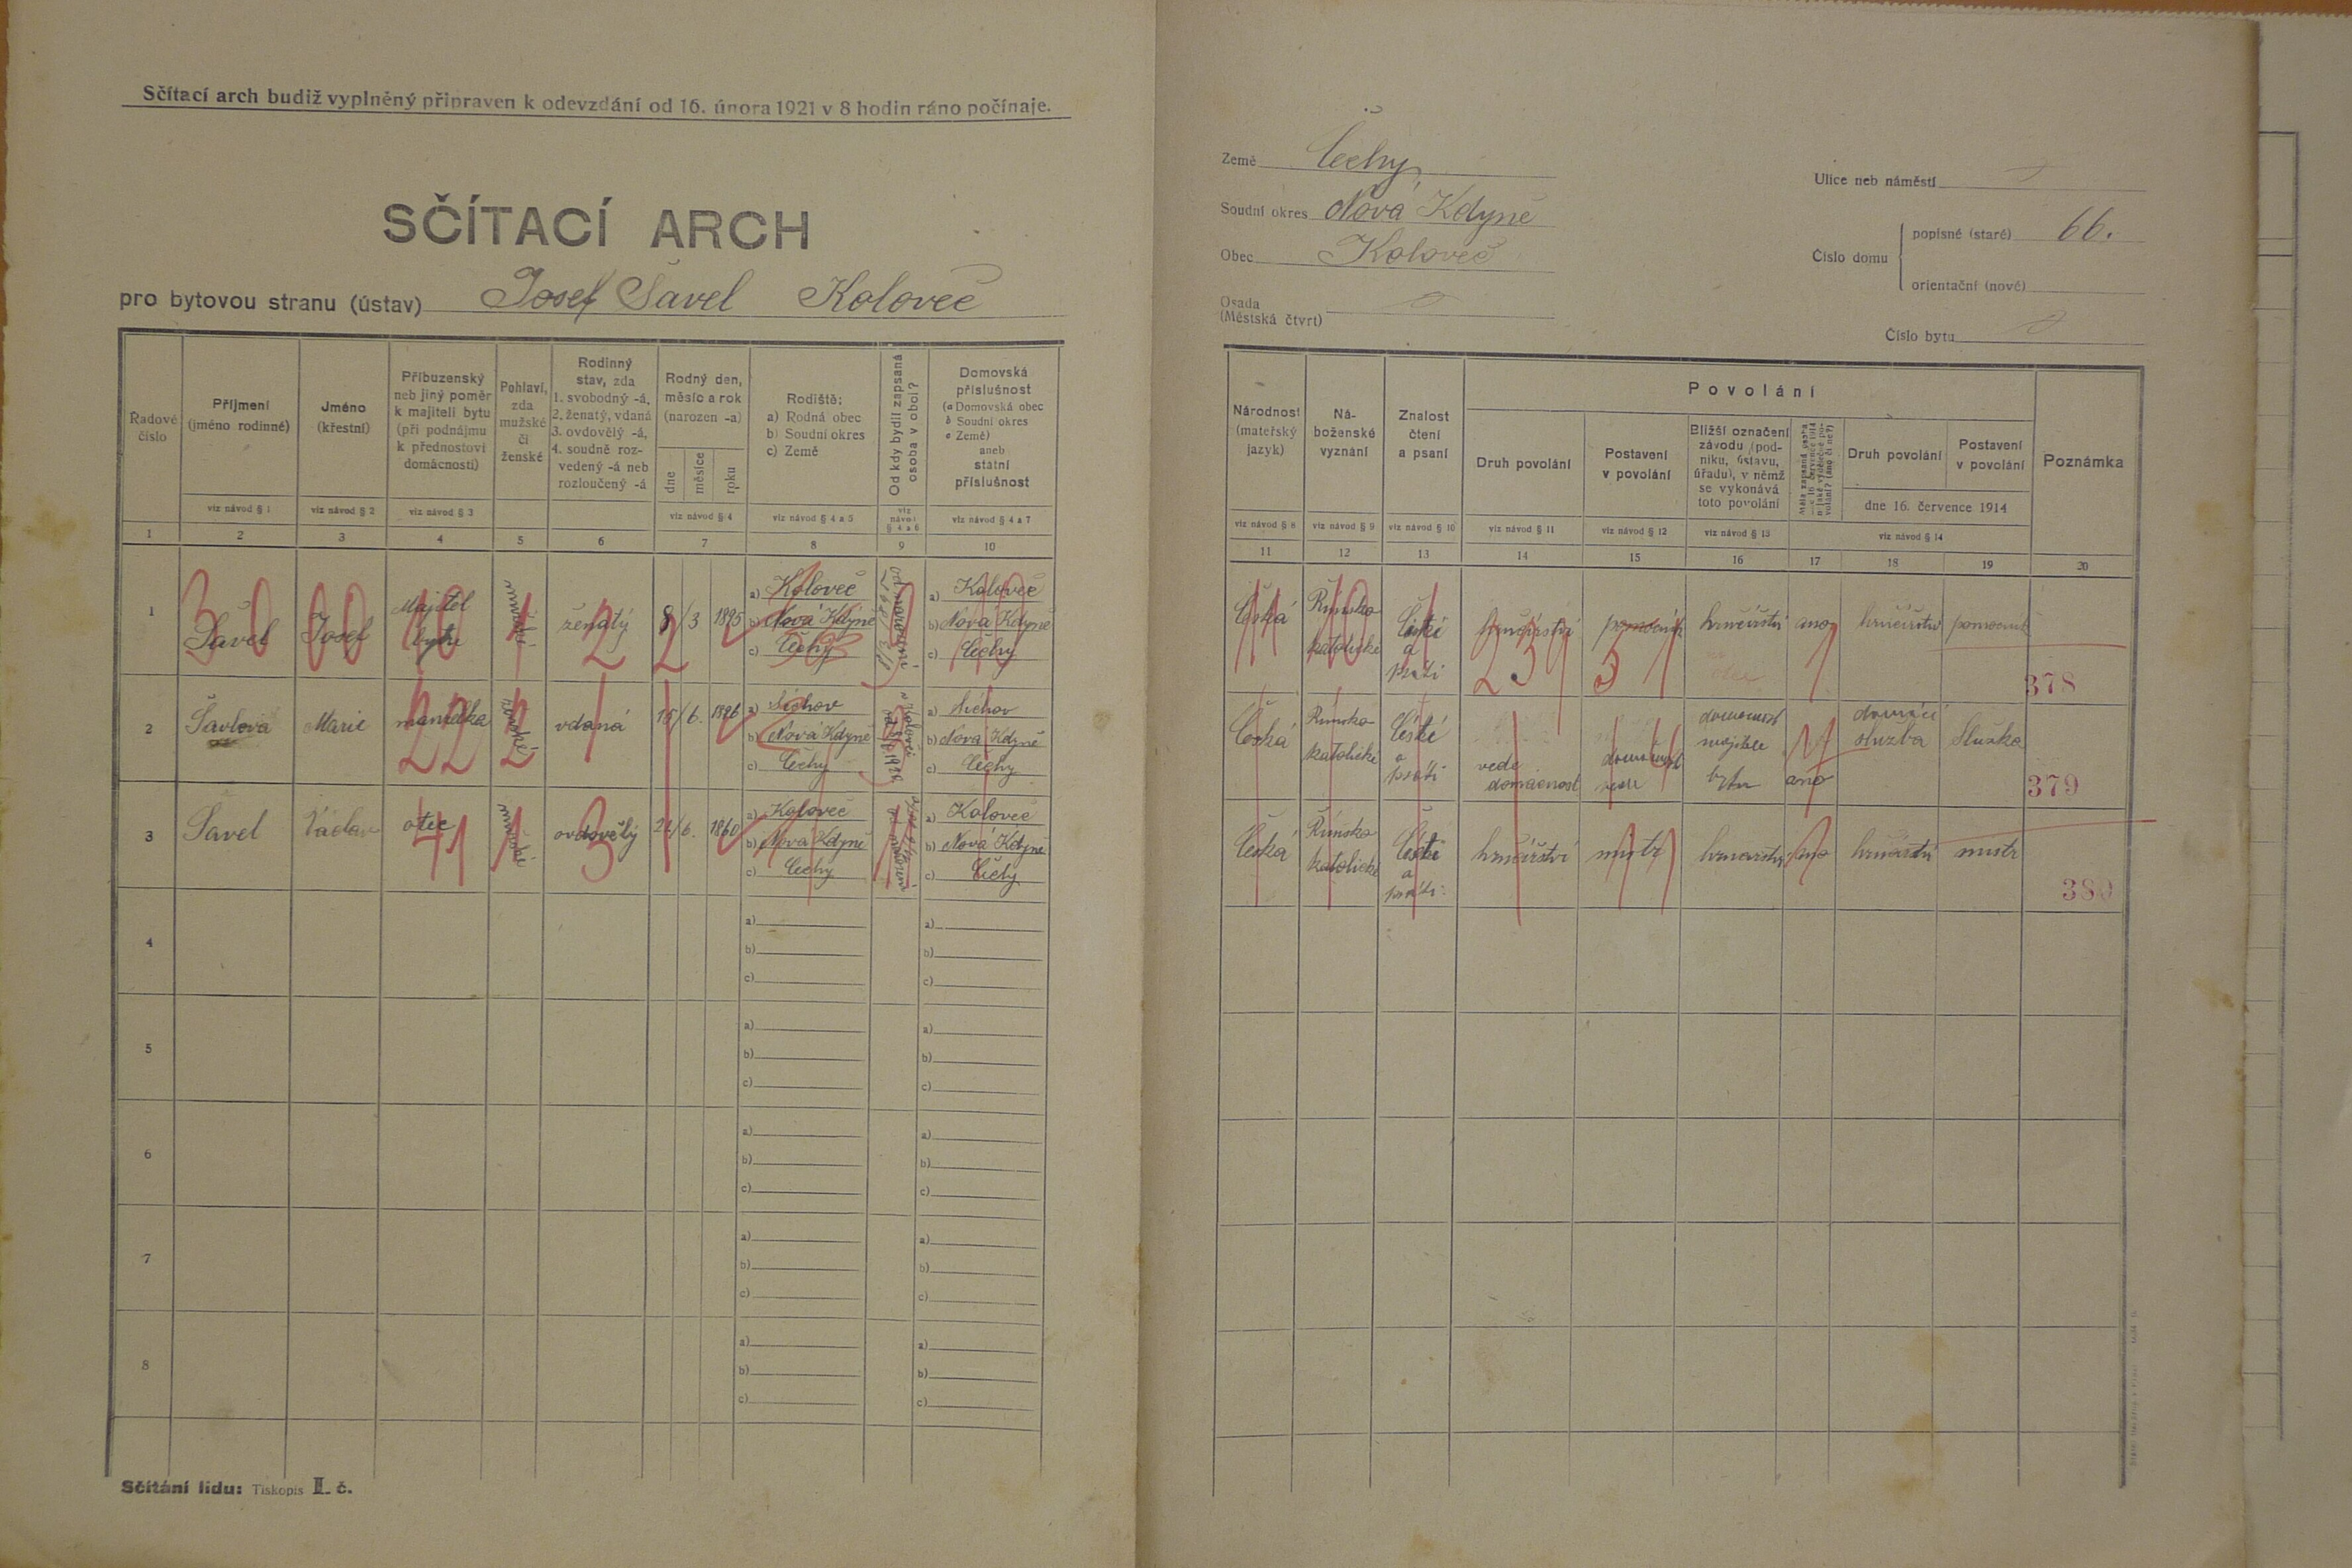 Sčítací arch budiž vyplněný připraven k odevzdání od 16. února 1921 v 8 hodin ráno počínaje.
SČÍTACÍ ARCH
pro bytovou stranu (ústav) Josef Šavel Koloveč
Řadové číslo
Příjmení (jméno rodinné)
Jméno (křestní)
Příbuzenský neb jiný poměr k majiteli bytu (při podnájmu k přednostovi domácnosti)
Pohlaví, zda mužské či ženské
Rodinný stav, zda 1. svobodný -á, 2. ženatý, vdaná 3. ovdovělý -á, 4. soudně rozvedený -á neb rozloučený -á
Rodný den, měsíc a rok (narozen -a)
dne měsíce roku
Rodiště: a) Rodná obec b) Soudní okres c) Země
Od kdy bydlí zapsaná osoba v obci?
Domovská příslušnost (a Domovská obec b Soudní okres c Země) aneb státní příslušnost
viz návod § 1 viz návod § 2 viz návod § 3 viz návod § 4 viz návod § 4 a 5 viz návod § 4 a 6 viz návod § 4 a 7
1 2 3 4 5 6 7 8 9 10
1 Šavel Josef Majitel bytu mužské ženatý 8/3 1895
a) Koloveč
b) Nová Kdyně
c) Čechy
od narození
a) Koloveč
b) Nová Kdyně
c) Čechy
2 Šavlová Marie manželka ženské vdaná 15/6. 1896
b) Nová Kdyně
c) Čechy
b) Nová Kdyně
c) Čechy
3 Šavel Václav otec mužské ovdovělý 1860
a) Koloveč
b) Nová Kdyně
c) Čechy
od narození
a) Koloveč
b) Nová Kdyně
c) Čechy
4 a) a)
b) b)
c) c)
5 a) a)
b) b)
c) c)
6 a) a)
b) b)
c) c)
7 a) a)
b) b)
c) c)
8 a) a)
b) b)
c) c)
Sčítání lidu: Tiskopis II. č.
Země Čechy
Soudní okres Nová Kdyně
Obec Koloveč
Osada (Městská čtvrť)
Ulice neb náměstí
Číslo domu
popisné (staré) 66.
orientační (nové)
Číslo bytu
Národnost (mateřský jazyk)
Náboženské vyznání
Znalost čtení a psaní
Povolání
Druh povolání
Postavení v povolání
Bližší označení závodu (podniku, ústavu, úřadu), v němž se vykonává toto povolání
Druh povolání
Postavení v povolání
dne 16. července 1914
Poznámka
viz návod § 8 viz návod § 9 viz návod § 10 viz návod § 11 viz návod § 12 viz návod § 13 viz návod § 14
11 12 13 14 15 16 17 18 19 20
Česká Římsko katolické čísti a psáti hrnčířství pomocník hrnčířství ano hrnčířství pomocník
378
Česká Římsko katolické čísti a psáti vede domácnost domácnost majitele bytu ano domácí služba Služka
379
Česká Římsko katolické čísti a psáti hrnčířství mistr hrnčířství ano hrnčířství mistr
380